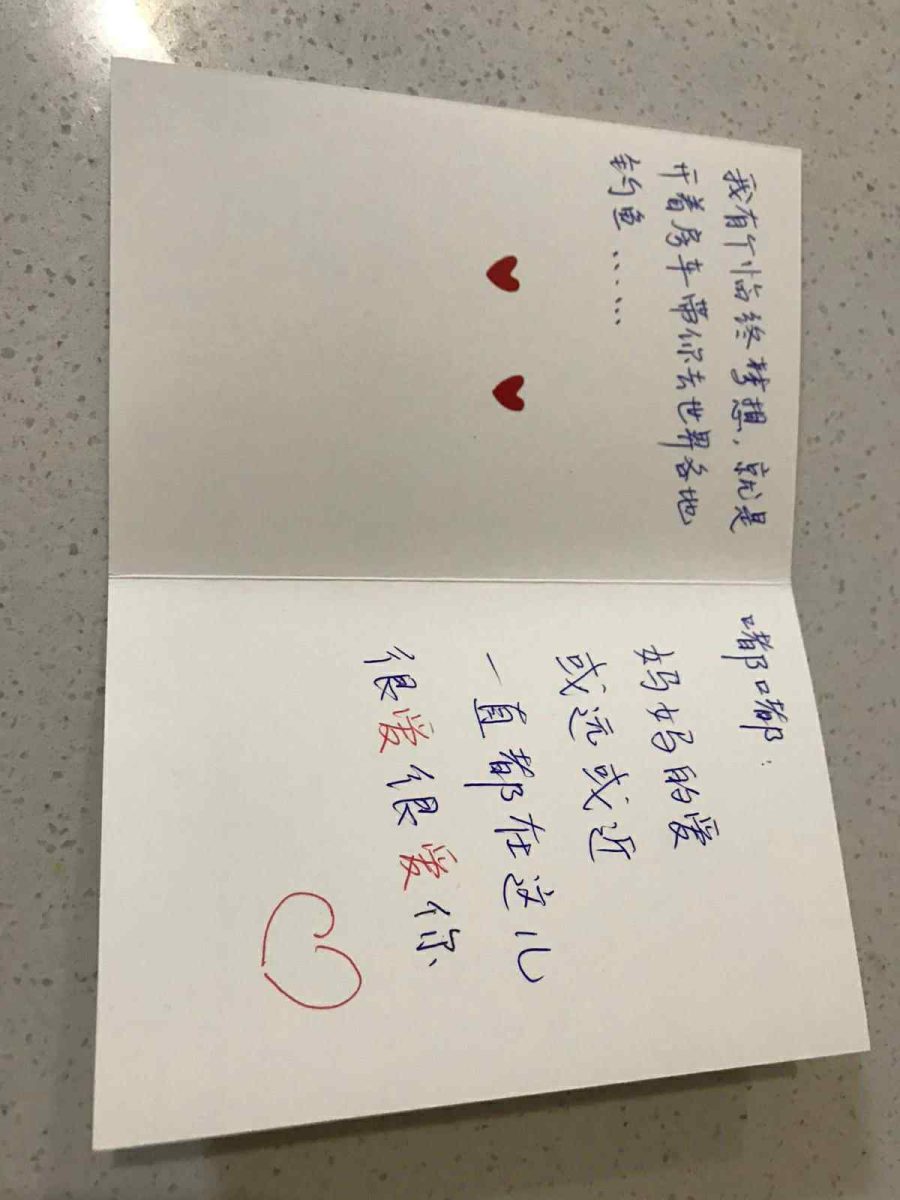 我有个临终梦想，就是
开着房车带你去世界各地
钓鱼……
嘟嘟：
妈妈的爱
或远或近
一直都在这儿
很爱很爱你